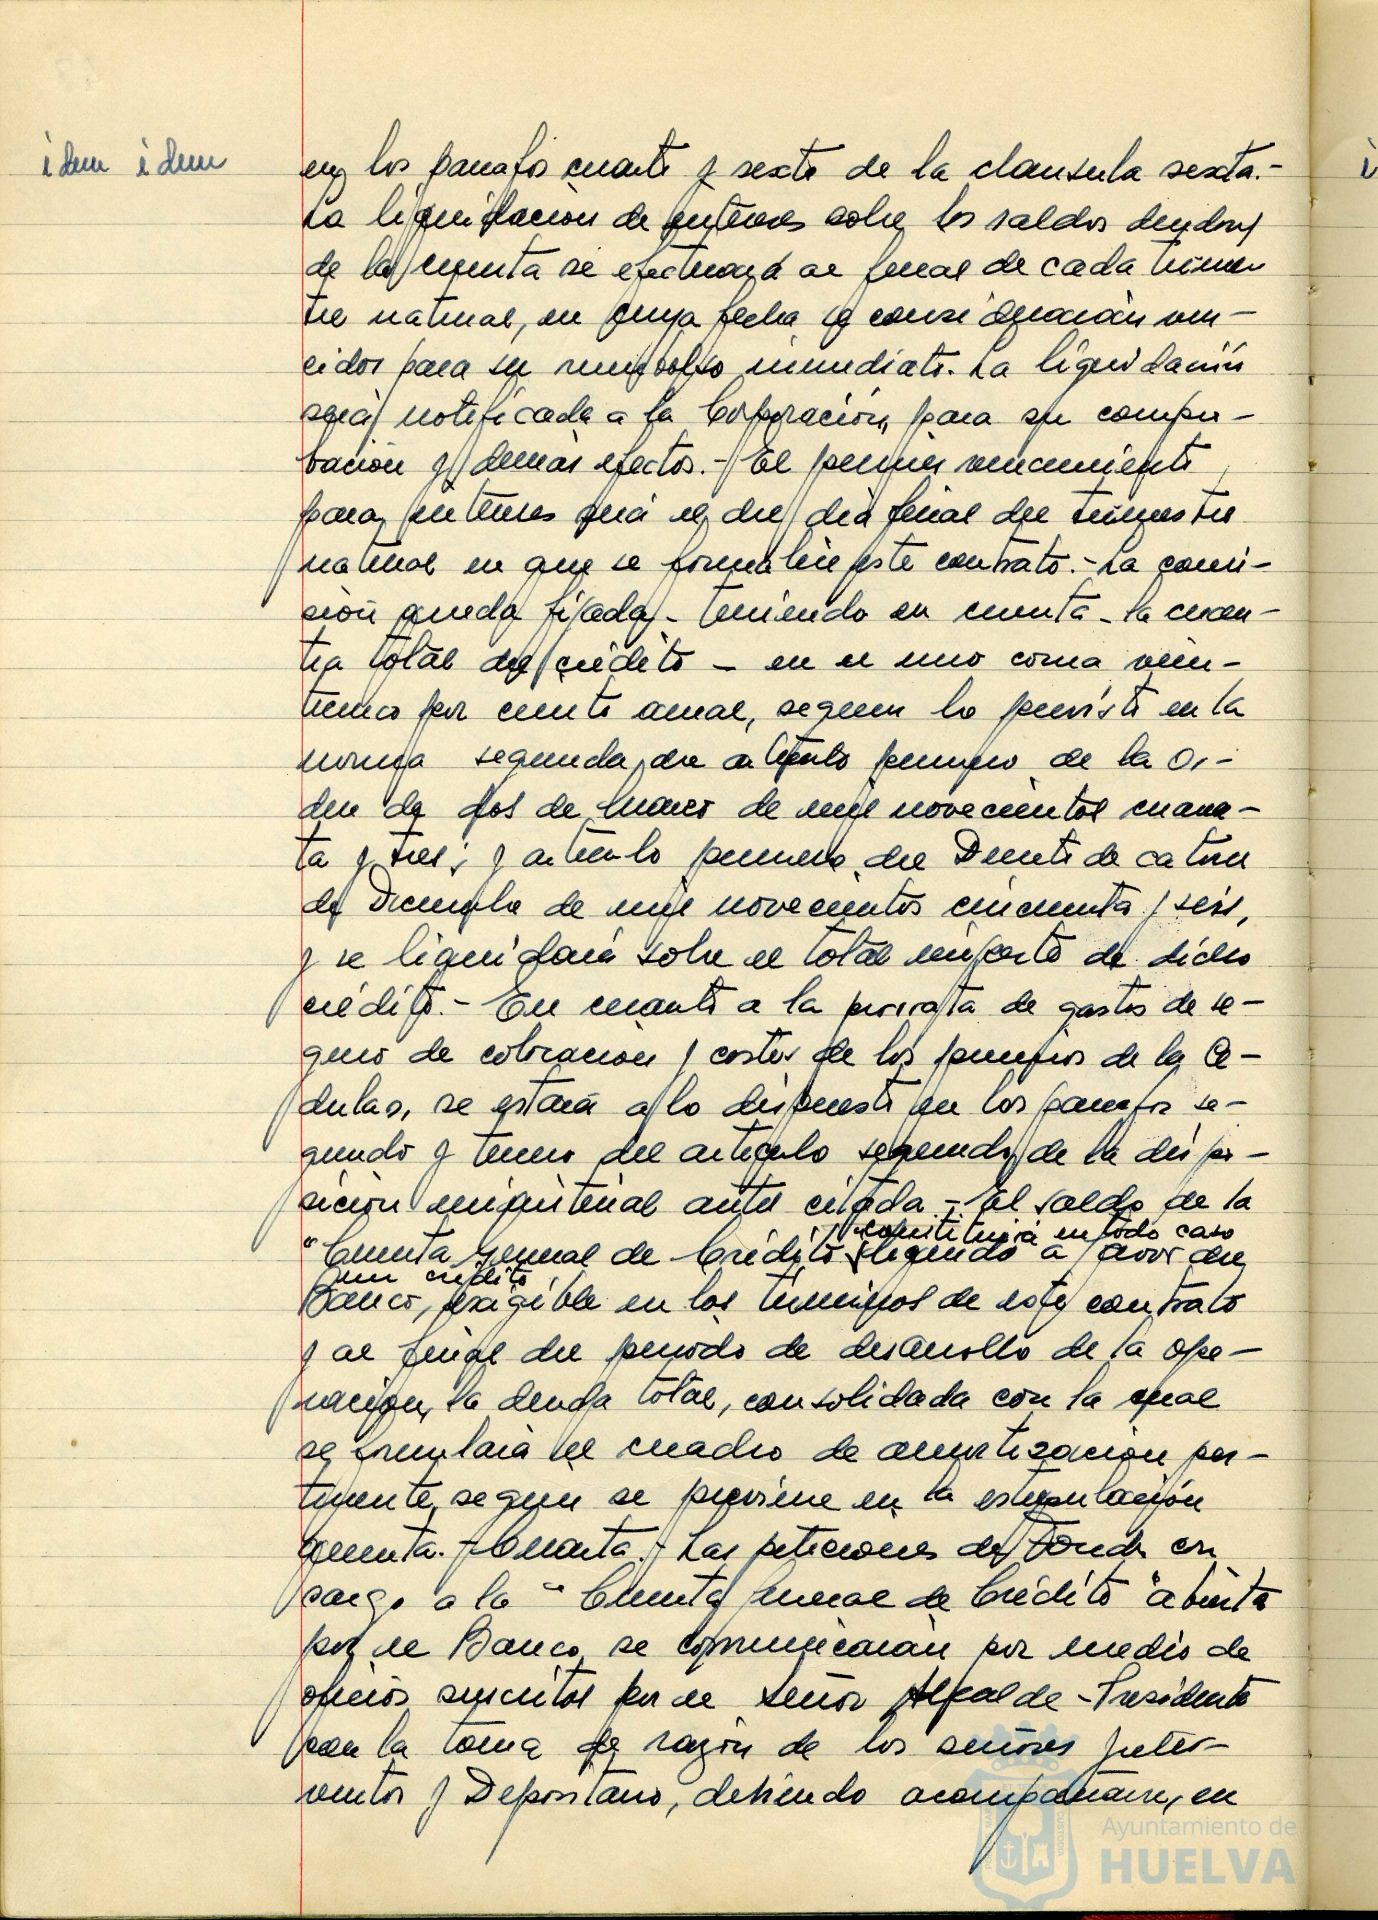 idem idem
en los parrafos cuarto y sexto de la clausula sexta.-
La liquidacion de intereses sobre los saldos deudores
de la cuenta se efectuará al final de cada trimes
tre natural, en cuya fecha se considerarán ven-
cidos para su reembolso inmediato. La liquidación
será notificada a la Corporación, para su compro-
bación y demás efectos.- El primer vencimiento
para intereses será el del día final del trimestre
natural en que se formalice este contrato.- La comi-
sión queda fijada - teniendo en cuenta - la cuan-
tia total del crédito - en el uno coma vein-
ticinco por ciento anual, segun lo previsto en la
norma segunda del articulo primero de la Or-
den de dos de Marzo de mil novecientos cuaren-
ta y tres; y articulo primero del Decreto de catorce
de Diciembre de mil novecientos cincuenta y seis,
y se liquidará sobre el total importe de dicho
crédito.- En cuanto a la prorrata de gastos de se-
guro de cobracion y costes de los premios de la Ce-
dulas, se estará a lo dispuesto en los parrafos se-
gundo y tercero del articulo segundo de la dispo-
sicion ministerial antes citada.- El saldo de la
constituirá en todo caso
"Cuenta general de Crédito" a favor del
un crédito
Banco, exigible en los términos de este contrato
y al final del periodo de desarrollo de la ope-
racion, la deuda total, consolidada con la cual
se formulará el cuadro de amortizacion per-
tinente, segun se previene en la estipulación
quinta.- Cuarta.- Las peticiones de fondos con
cargo a la "Cuenta General de Crédito" abierta
por el Banco, se comunicarán por medio de
oficios suscritos por el señor Alcalde-Presidente
con la toma de razón de los señores Inter-
ventor y Depositario, debiendo acompañarse, en
Ayuntamiento de
HUELVA